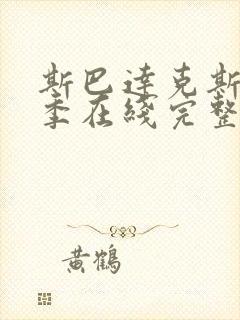 斯巴達克斯
季在綫完整
黄鶴